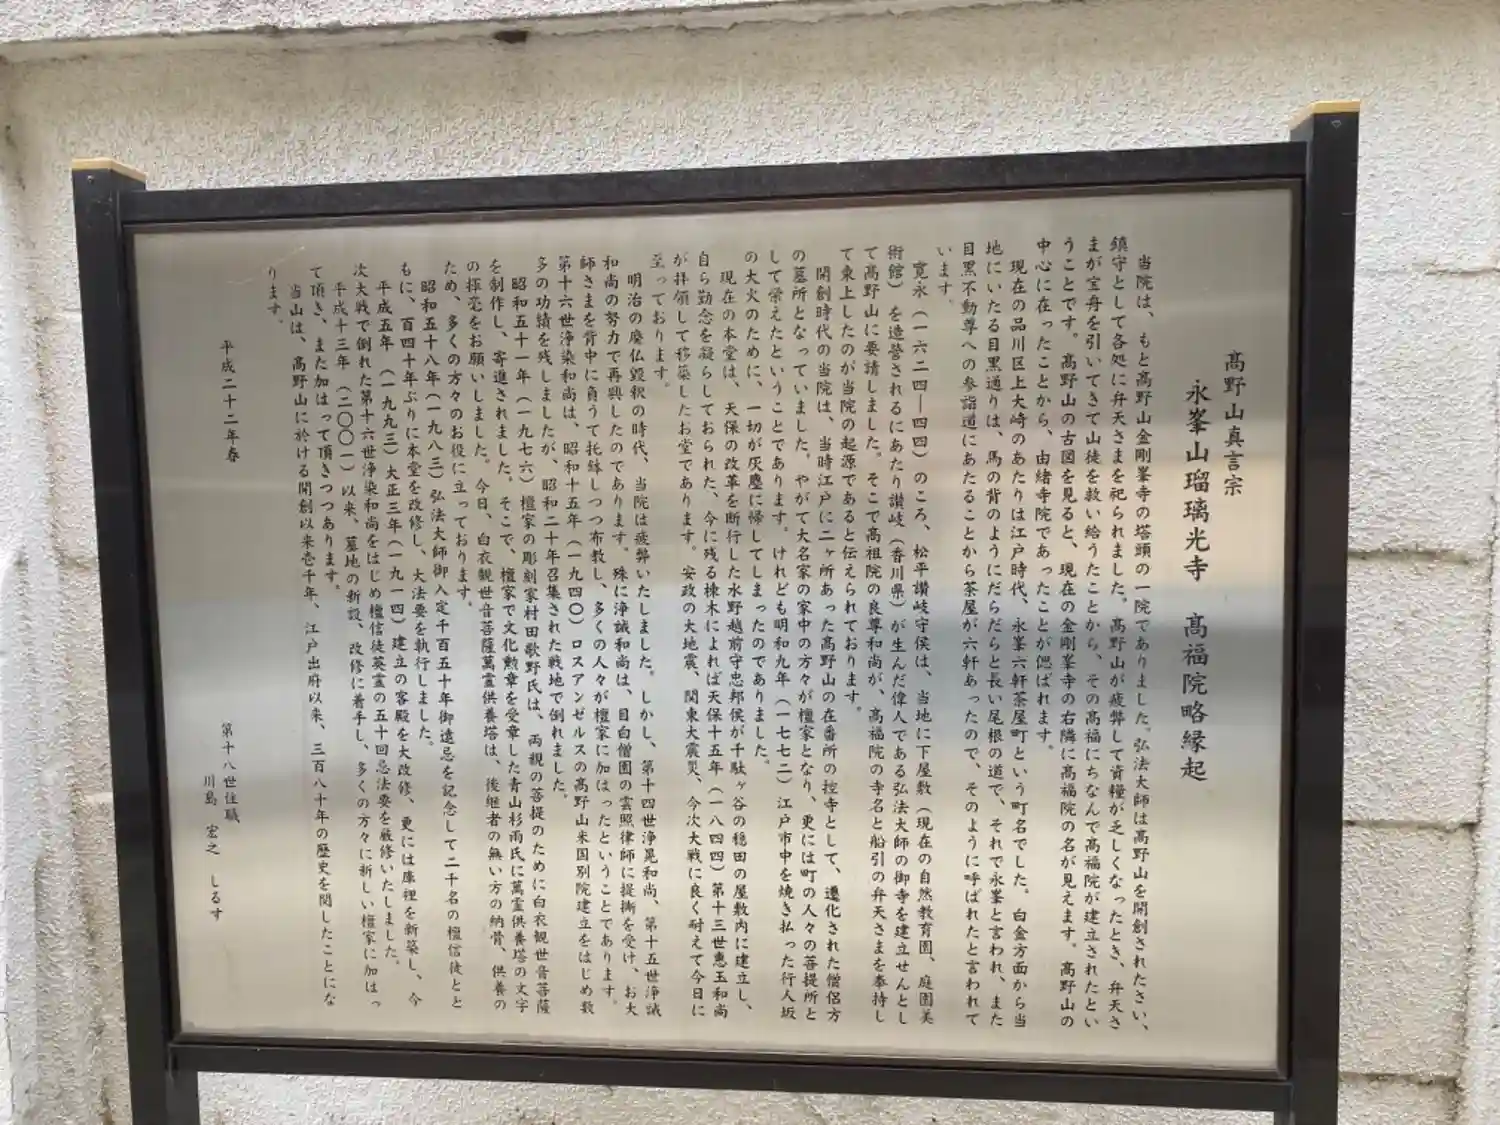 高野山真言宗
永峯山瑠璃光寺　高福院略縁起
当院は、もと高野山金剛峯寺の塔頭の一院でありました。弘法大師は高野山を開創されたさい、
鎮守として各処に弁天さまを祀られました。高野山が疲弊して資糧が乏しくなったとき、弁天さ
まが宝舟を引いてきて山徒を救い給うたことから、その高福にちなんで高福院が建立されたとい
うことです。高野山の古図を見ると、現在の金剛峯寺の右隣に高福院の名が見えます。高野山の
中心に在ったことから、由緒寺院であったことが偲ばれます。
現在の品川区上大崎のあたりは江戸時代、永峯六軒茶屋町という町名でした。白金方面から当
地にいたる目黒通りは、馬の背のようにだらだらと長い尾根の道で、それで永峯と言われ、また
目黒不動尊への参詣道にあたることから茶屋が六軒あったので、そのように呼ばれたと言われて
います。
寛永（一六二四―四四）のころ、松平讃岐守侯は、当地に下屋敷（現在の自然教育園、庭園美
術館）を造営されるにあたり讃岐（香川県）が生んだ偉人である弘法大師の御寺を建立せんとし
て高野山に要請しました。そこで高祖院の良尊和尚が、高福院の寺名と船引の弁天さまを奉持し
て東上したのが当院の起源であると伝えられております。
開創時代の当院は、当時江戸に二ヶ所あった高野山の在番所の控寺として、遷化された僧侶方
の墓所となっていました。やがて大名家の家中の方々が檀家となり、更には町の人々の菩提所と
して栄えたということであります。けれども明和九年（一七七二）江戸市中を焼き払った行人坂
の大火のために、一切が灰塵に帰してしまったのでありました。
現在の本堂は、天保の改革を断行した水野越前守忠邦侯が千駄ヶ谷の穏田の屋敷内に建立し、
自ら勤念を凝らしておられた、今に残る棟木によれば天保十五年（一八四四）第十三世恵玉和尚
が拝領して移築したお堂であります。安政の大地震、関東大震災、今次大戦に良く耐えて今日に
至っております。
明治の廃仏毀釈の時代、当院は疲弊いたしました。しかし、第十四世浄晃和尚、第十五世浄誠
和尚の努力で再興したのであります。殊に浄誠和尚は、目白僧園の雲照律師に提撕を受け、お大
師さまを背中に負うて托鉢しつつ布教し、多くの人々が檀家に加はったということであります。
第十六世浄染和尚は、昭和十五年（一九四〇）ロスアンゼルスの高野山米国別院建立をはじめ数
多の功績を残しましたが、昭和二十年召集された戦地で倒れました。
昭和五十一年（一九七六）檀家の彫刻家村田歌野氏は、両親の菩提のために白衣観世音菩薩
を制作し、寄進されました。そこで、檀家で文化勲章を受章した青山杉雨氏に萬霊供養塔の文字
の揮毫をお願いしました。今日、白衣観世音菩薩萬霊供養塔は、後継者の無い方の納骨、供養の
ため、多くの方々のお役に立っております。
昭和五十八年（一九八三）弘法大師御入定千百五十年御遠忌を記念して二千名の檀信徒とと
もに、百四十年ぶりに本堂を改修し、大法要を執行しました。
平成五年（一九九三）大正三年（一九一四）建立の客殿を大改修、更には庫裡を新築し、今
次大戦で倒れた第十六世浄染和尚をはじめ檀信徒英霊の五十回忌法要を厳修いたしました。
平成十三年（二〇〇一）以来、墓地の新設、改修に着手し、多くの方々に新しい檀家に加はっ
て頂き、また加はって頂きつつあります。
当山は、高野山に於ける開創以来壱千年、江戸出府以来、三百八十年の歴史を閲したことにな
ります。
平成二十二年春
第十八世住職
川島　宏之　しるす